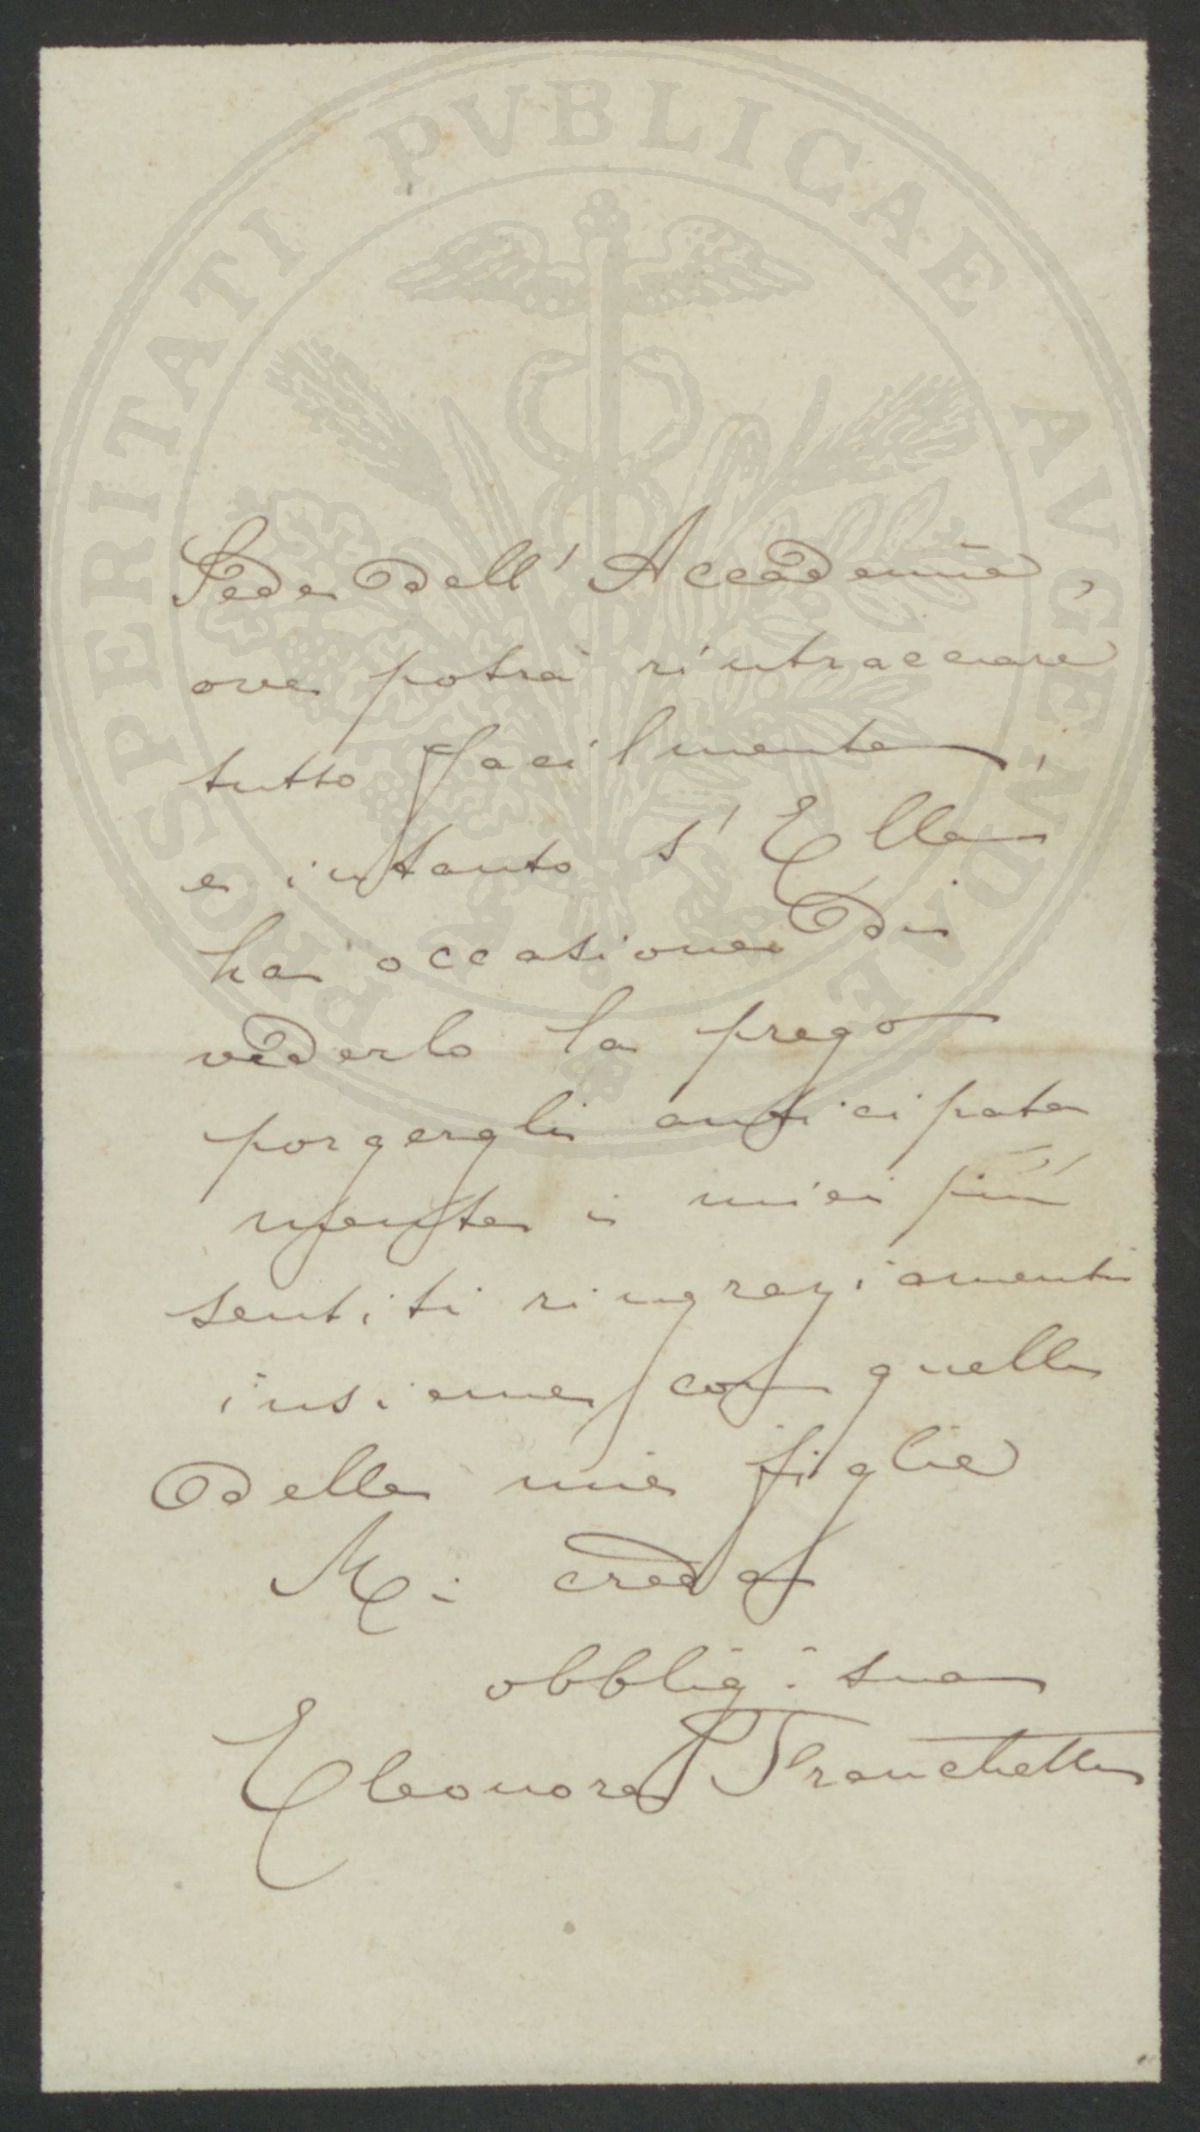 PROSPERITATI PVBLICAE AVGENDAE
Sede dell' Accademia,
ove potrà rintracciare
tutto facilmente;
e intanto s' Ella
ha occasione di
vederlo la prego
porgergli anticipata
mente i miei più
sentiti ringraziamenti
insieme con quelli
delle mie figlie
Mi creda
obblig: sua
Eleonora Franchetti